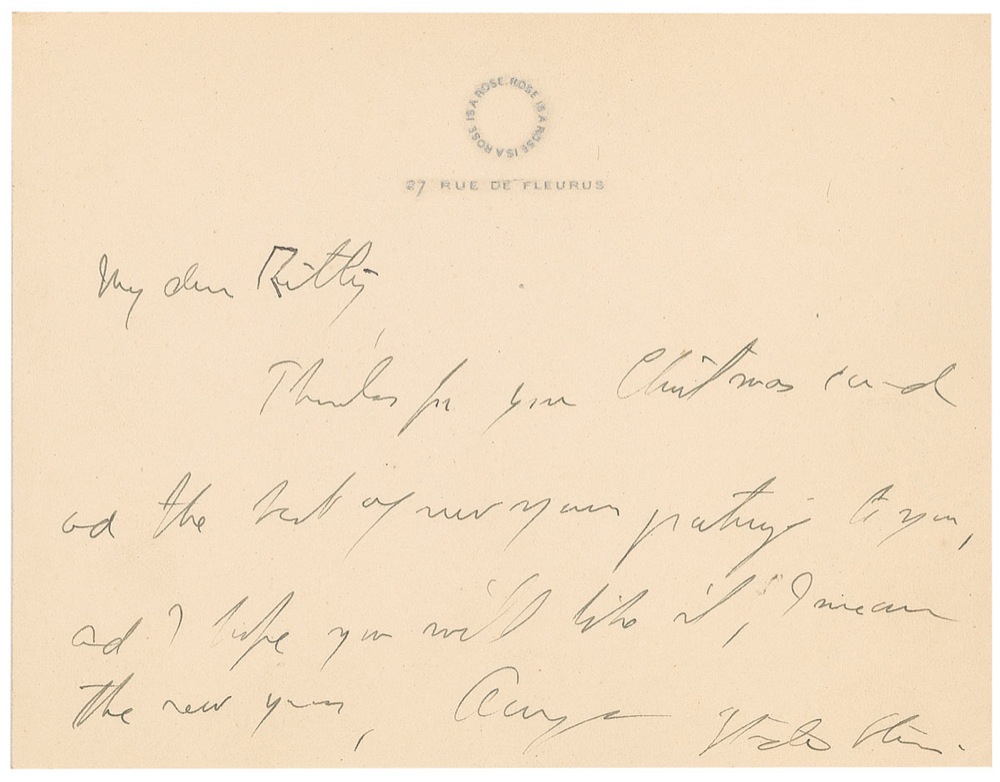 ROSE IS A ROSE IS A ROSE IS A ROSE.
27 RUE DE FLEURUS
My dear
Thanks for your Christmas card
and the best of new years greetings to you,
and I hope you will like it, I mean
the new year, Always